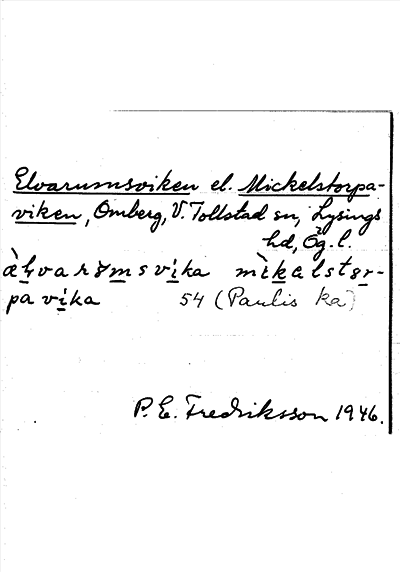 Elvarumsviken el. Mickelstorpa-
viken, Omberg, V. Tollstad sn, Lysings
hd, Ög. l.
mìkalstør-
pa vika 54 (Paulis ka)
P. E. Fredriksson 1946.